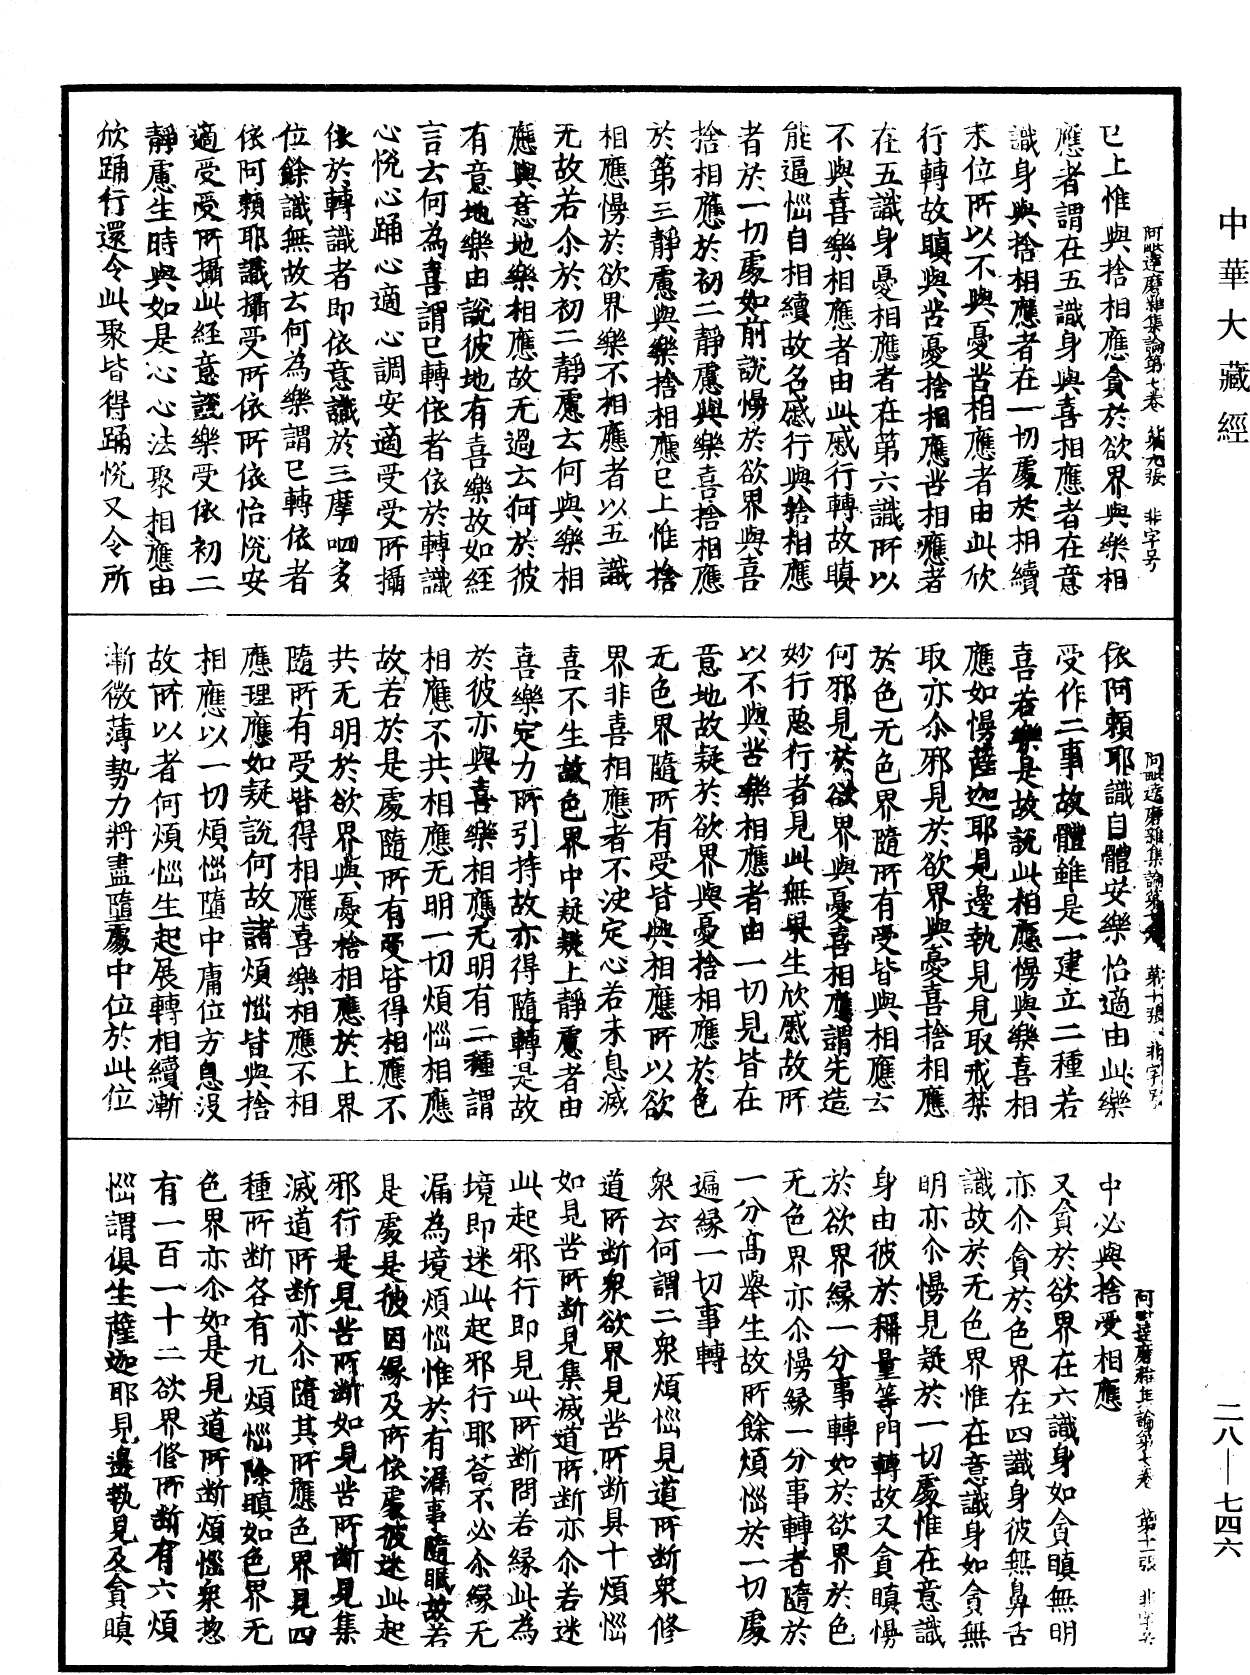 中華大藏經
二八—七四六
阿毗達磨雜集論第七卷 第九張 非字号
已上惟與捨相應貪於欲界與樂相
應者謂在五識身與喜相應者在意
識身與捨相應者在一切處於相續
末位所以不與憂苦相應者由此欣
行轉故瞋與苦憂捨相應苦相應者
在五識身憂相應者在第六識所以
不與喜樂相應者由此慼行轉故瞋
能逼惱自相續故名慼行與捨相應
者於一切處如前說慢於欲界與喜
捨相應於初二靜慮與樂喜捨相應
於第三靜慮與樂捨相應已上惟捨
相應慢於欲界樂不相應者以五識
无故若尒於初二靜慮云何與樂相
應與意地樂相應故无過云何於彼
有意地樂由說彼地有喜樂故如經
言云何為喜謂已轉依者依於轉識
心悅心踊心適心調安適受受所攝
依於轉識者即依意識於三摩呬多
位餘識無故云何為樂謂已轉依者
依阿賴耶識攝受所依所依怡悅安
適受受所攝此經意說樂受依初二
靜慮生時與如是心心法聚相應由
欣踊行還令此聚皆得踊悅又令所
阿毗達磨雜集論第七卷 第十張 非字号
依阿賴耶識自體安樂怡適由此樂
受作二事故體雖是一建立二種若
喜若樂是故說此相應慢與樂喜相
應如慢薩迦耶見邊執見見取戒禁
取亦尒邪見於欲界與憂喜捨相應
於色无色界隨所有受皆與相應云
何邪見於欲界與憂喜相應謂先造
妙行惡行者見此無果生欣慼故所
以不與苦樂相應者由一切見皆在
意地故疑於欲界與憂捨相應於色
无色界隨所有受皆與相應所以欲
界非喜相應者不決定心若未息滅
喜不生故色界中疑疑上靜慮者由
喜樂定力所引持故亦得隨轉是故
於彼亦與喜樂相應无明有二種謂
相應不共相應无明一切煩惱相應
故若於是處隨所有受皆得相應不
共无明於欲界與憂捨相應於上界
隨所有受皆得相應喜樂相應不相
應理應如疑說何故諸煩惱皆與捨
相應以一切煩惱墮中庸位方息沒
故所以者何煩惱生起展轉相續漸
漸微薄勢力將盡墮處中位於此位
阿毗達磨雜集論第七卷 第十一張 非字号
中必與捨受相應
又貪於欲界在六識身如貪瞋無明
亦尒貪於色界在四識身彼無鼻舌
識故於无色界惟在意識身如貪無
明亦尒慢見疑於一切處惟在意識
身由彼於稱量等門轉故又貪瞋慢
於欲界緣一分事轉如於欲界於色
无色界亦尒慢緣一分事轉者隨於
一分高舉生故所餘煩惱於一切處
遍緣一切事轉
衆云何謂二衆煩惱見道所斷衆修
道所斷衆欲界見苦所斷具十煩惱
如見苦所斷見集滅道所斷亦尒若迷
此起邪行即見此所斷問若緣此為
境即迷此起邪行耶荅不必尒緣无
漏為境煩惱惟於有漏事隨眠故若
是處是彼因緣及所依處彼迷此起
邪行是見苦所斷如見苦所斷見集
滅道所斷亦尒隨其所應色界見四
種所斷各有九煩惱除瞋如色界无
色界亦尒如是見道所斷煩惱衆惣
有一百一十二欲界修所斷有六煩
惱謂俱生薩迦耶見邊執見及貪瞋